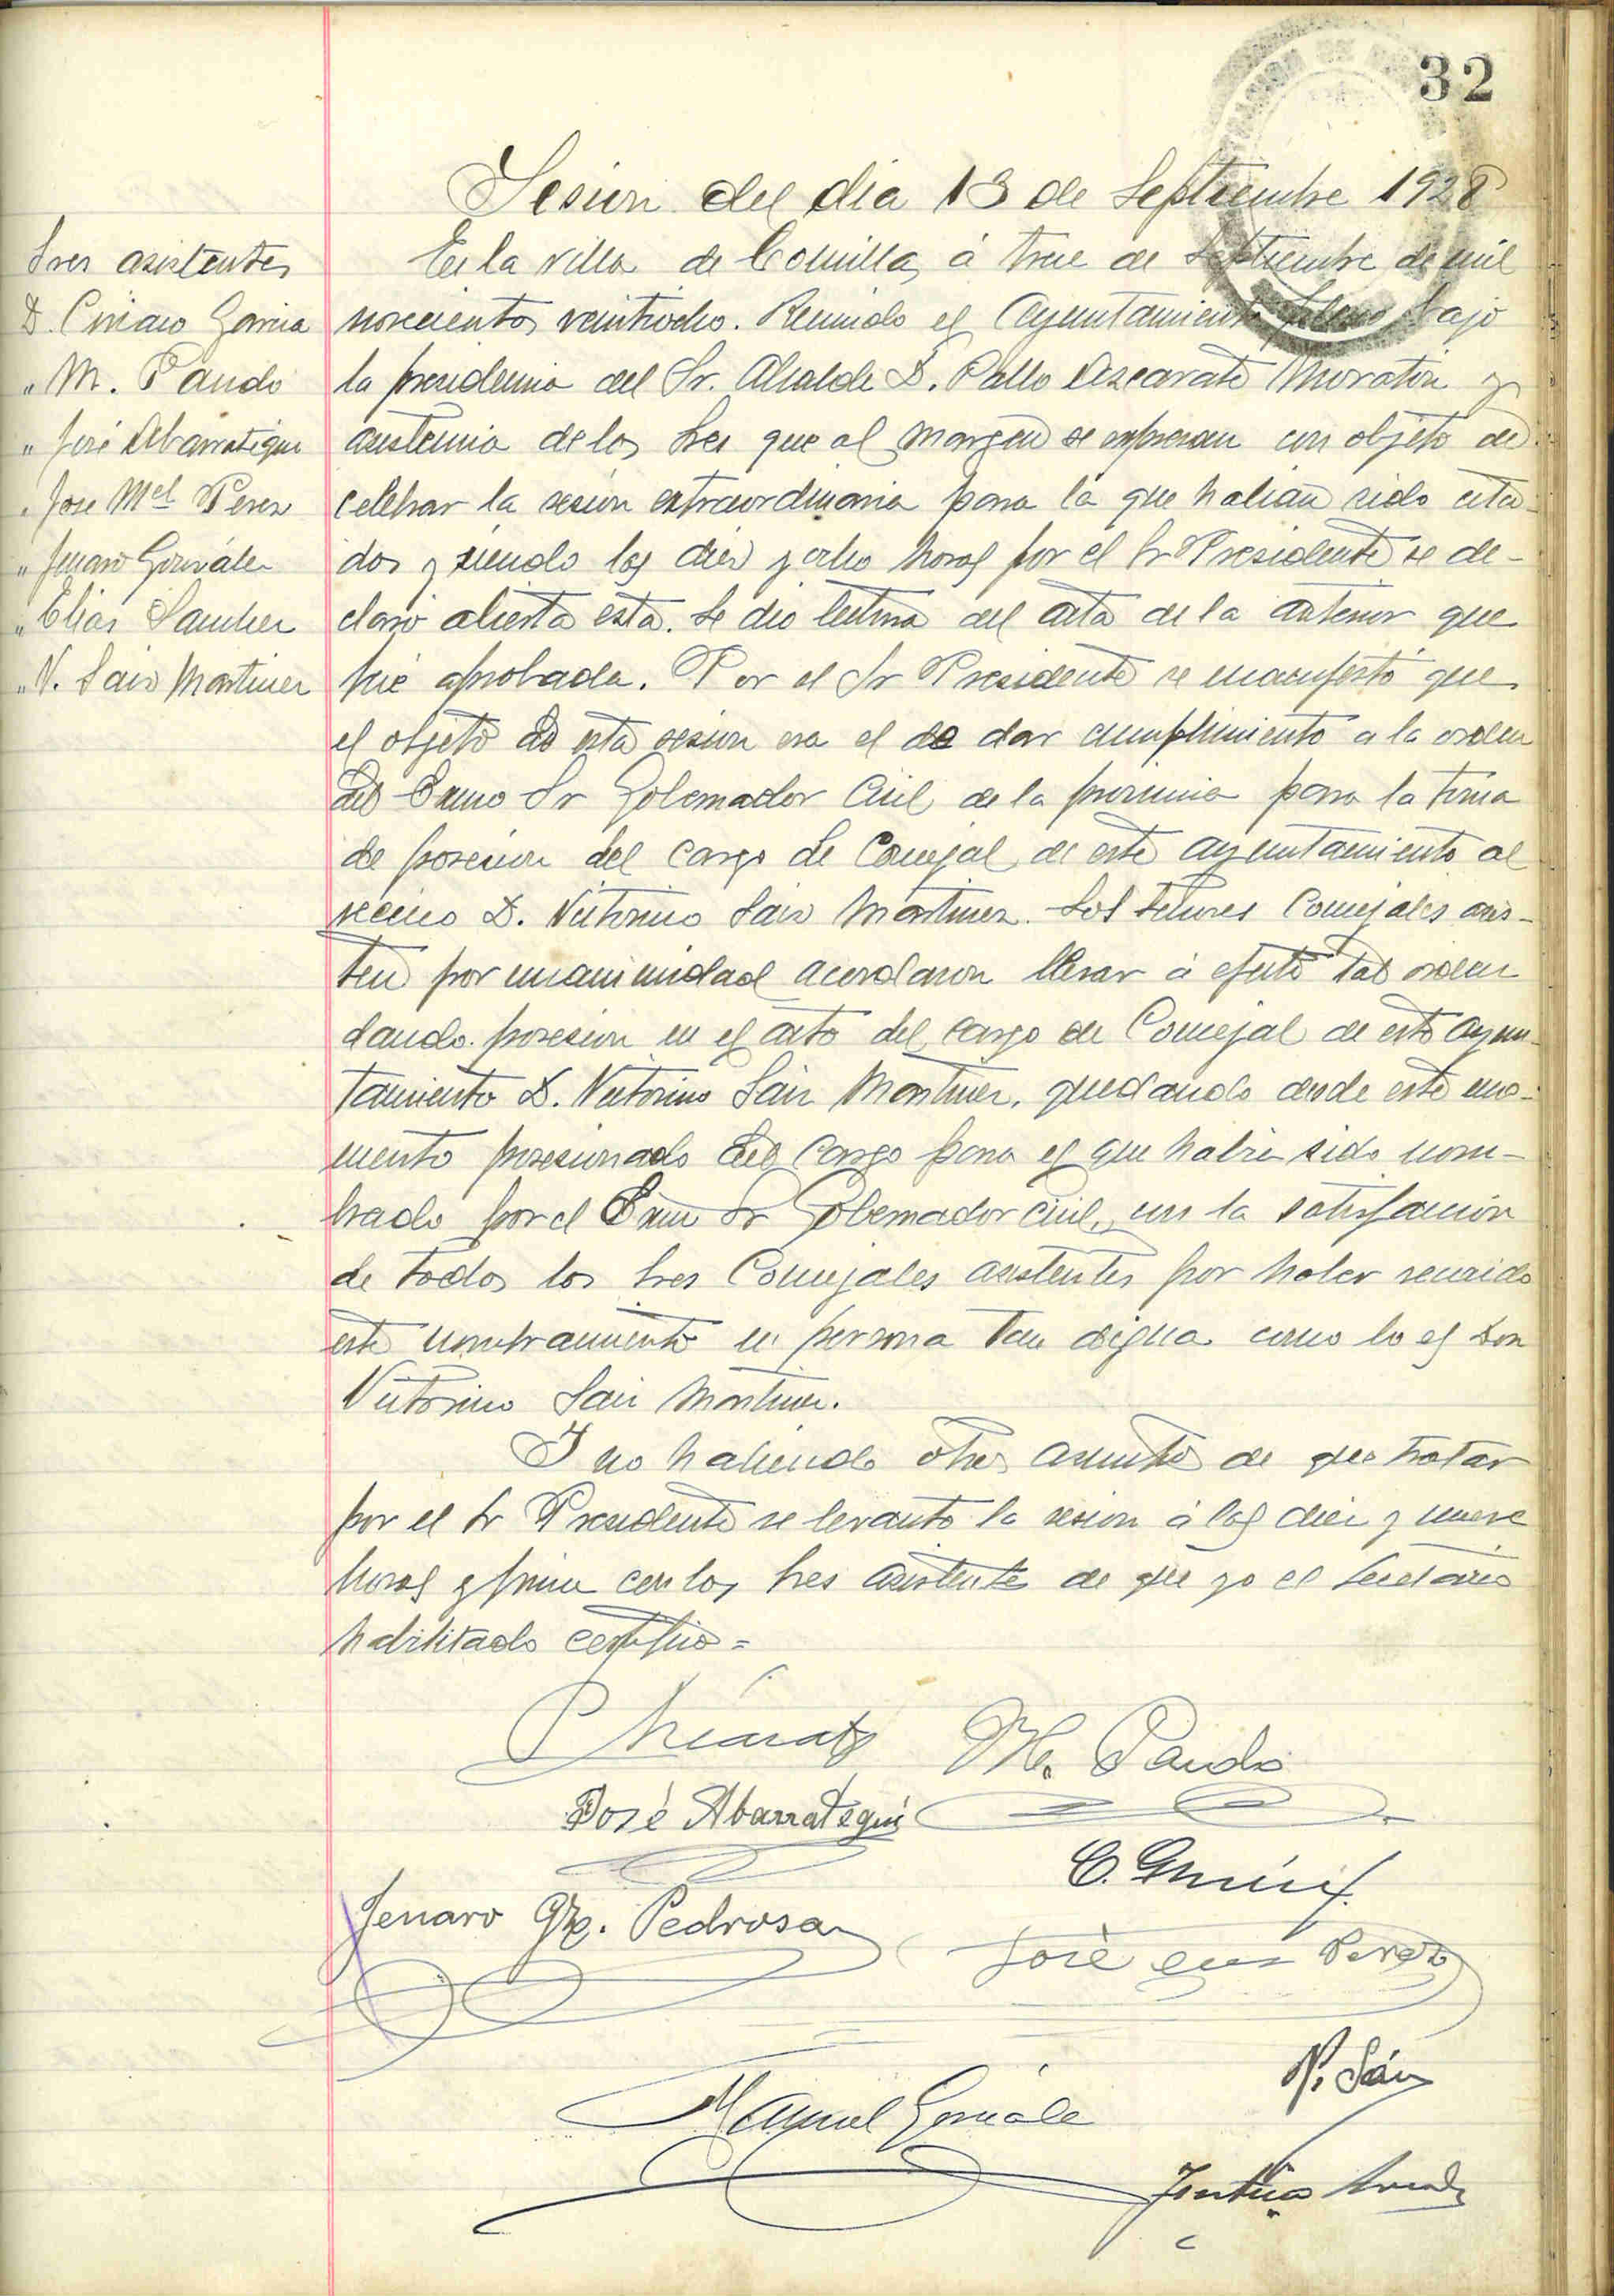 32
Sesion del dia 13 de Septiembre 1928
Sres asistentes
D. Ciriaco Garcia
" M. Pando
" José Abarrategui
" Jose Mel Perez
" Jenaro González
" Elias Sanchez
" V. Saiz Martinez
En la villa de Comillas, á trece de Septiembre de mil
novecientos veintiocho. Reunido el Ayuntamiento pleno bajo
la presidencia del Sr. Alcalde D. Pablo Azcarate Moratin y
asistencia de los Sres que al margen se expresan con objeto de
celebrar la sesion extraordinaria para la que habian sido cita-
dos y siendo las diez y ocho horas por el Sr Presidente se de-
claró abierta esta. Se dio lectura del acta de la anterior que
fué aprobada. Por el Sr Presidente se manifestó que
el objeto de esta sesion era el de dar cumplimiento a la orden
del Exmo Sr Gobernador Civil de la provincia para la toma
de posesion del cargo de Concejal de este ayuntamiento al
vecino D. Victorino Saiz Martinez. Los Señores Concejales asis-
ten por unanimidad acordaron llevar á efecto tal orden
dando posesion en el acto del cargo de Concejal de este ayun-
tamiento D. Victorino Saiz Martinez, quedando desde este mo-
mento posesionado del cargo para el que habia sido nom-
brado por el Exmo Sr Gobernador civil, con la satisfacción
de todos los Sres Concejales asistentes por haber recaido
este nombramiento en persona tan digna como lo es Don
Victorino Saiz Martinez.
Y no habiendo otros asuntos de que tratar
por el Sr Presidente se levantó la sesion á las diez y nueve
horas y firma con los Sres asistentes de que yo el Secretario
habilitado certifico =
M. Pando
José Abarrategui
Jenaro Gz. Pedrosa
José Perez
V. Sáiz
Manuel Gonzále